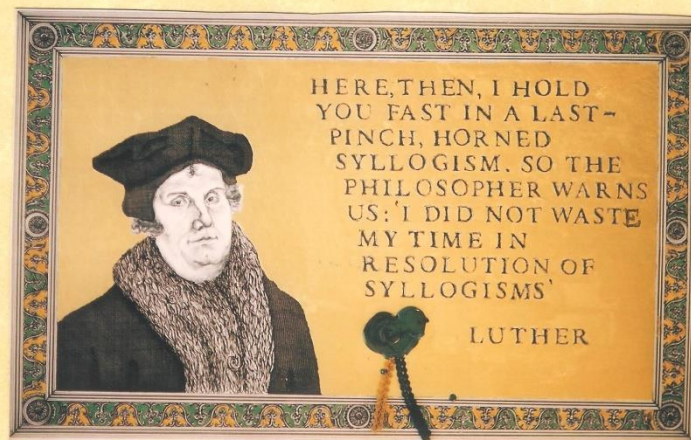 HERE, THEN, I HOLD
YOU FAST IN A LAST-
PINCH, HORNED
SYLLOGISM. SO THE
PHILOSOPHER WARNS
US: 'I DID NOT WASTE
MY TIME IN
RESOLUTION OF
SYLLOGISMS'
LUTHER